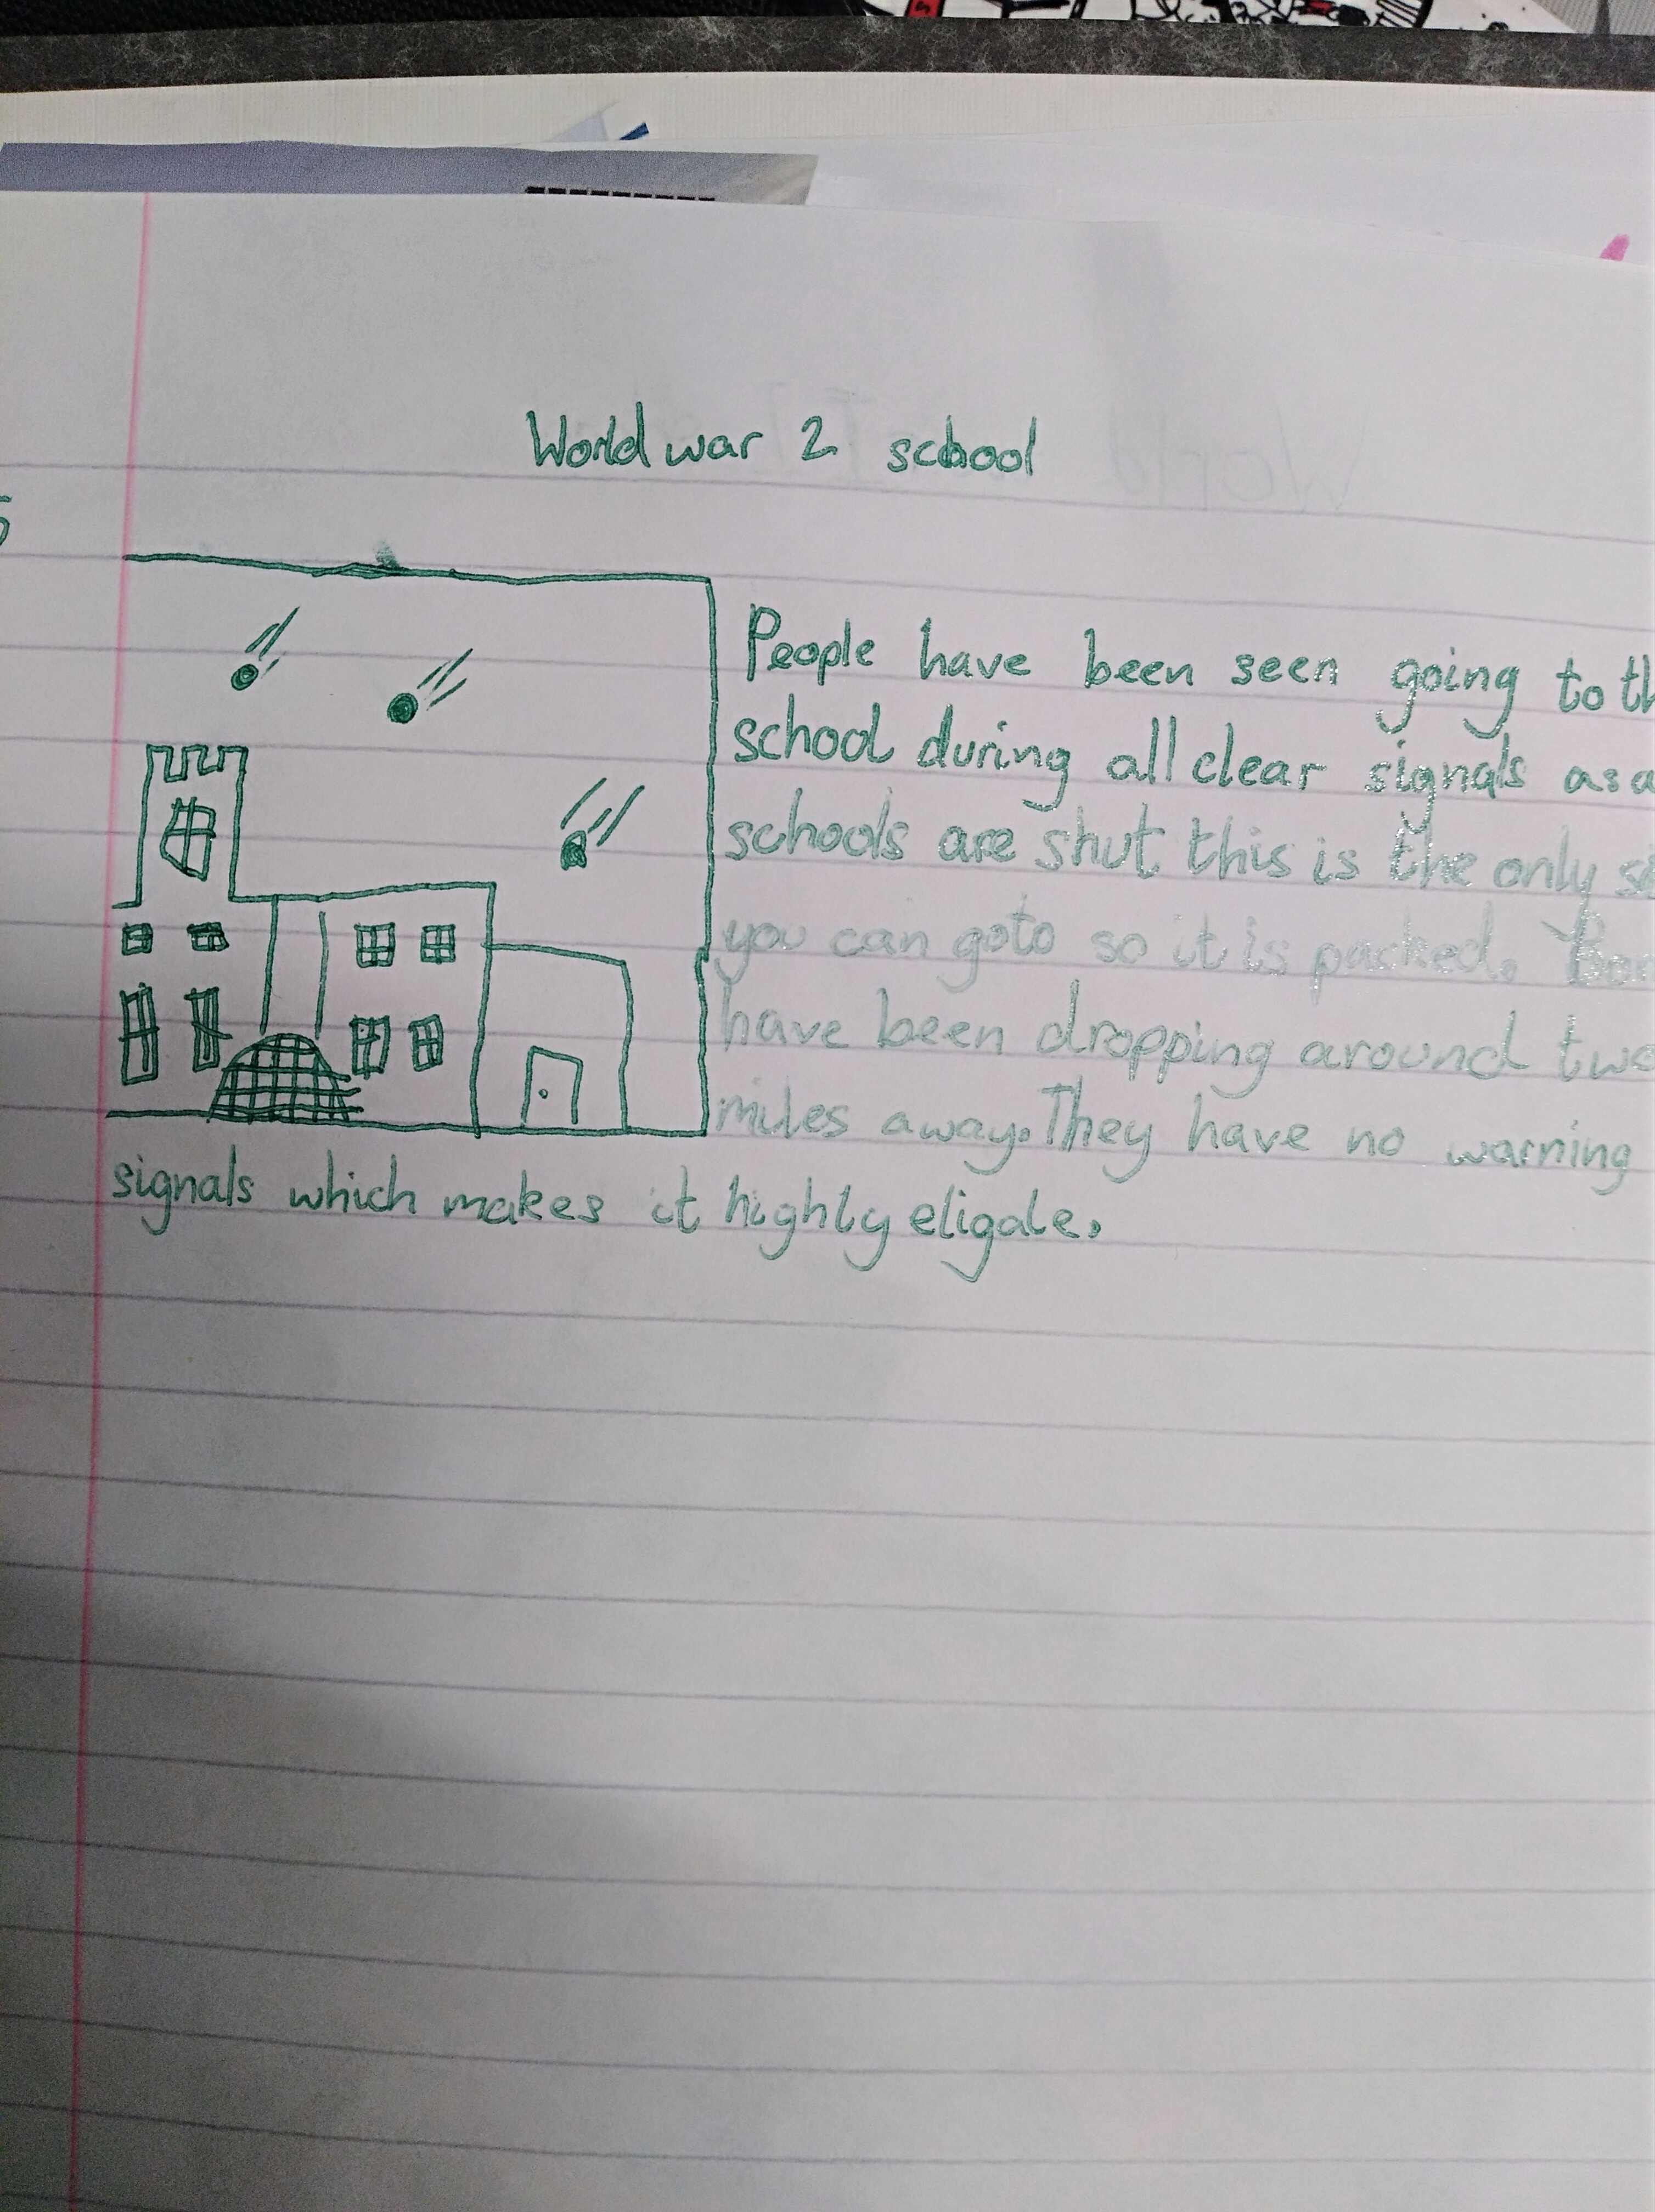 World war 2 school
5
People have been seen going to th
school during all clear signals as a
schools are shut this is the only s
you can goto so it is packed. Bom
have been dropping around two
miles away. They have no warning
signals which makes it highly eligale.